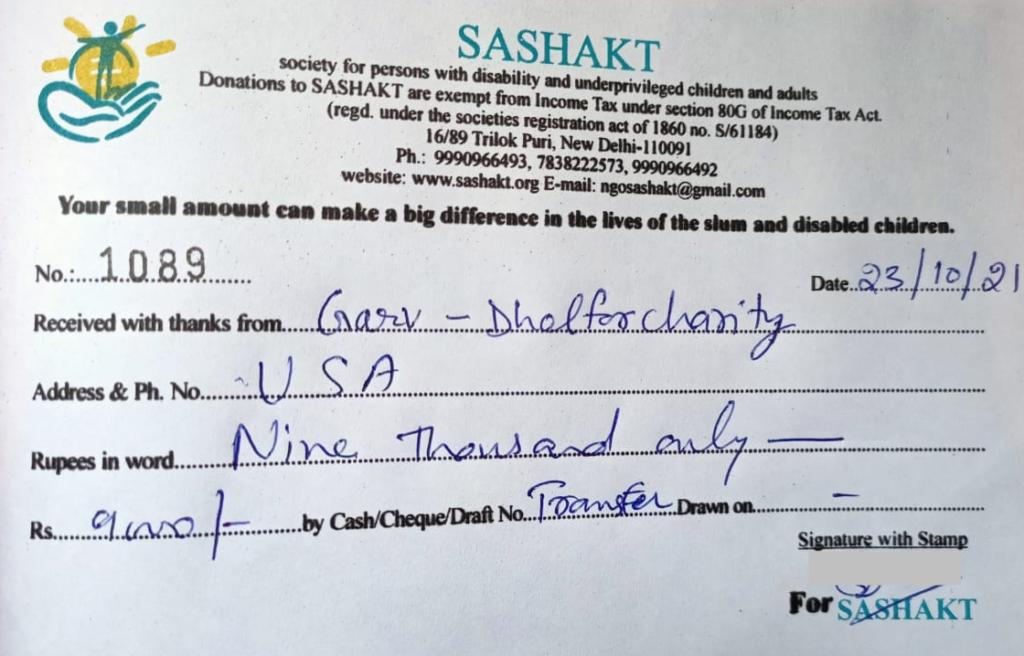 SASHAKT
society for persons with disability and underprivileged children and adults
Donations to SASHAKT are exempt from Income Tax under section 80G of Income Tax Act.
(regd. under the societies registration act of 1860 no. S/61184)
16/89 Trilok Puri, New Delhi-110091
Ph.: 9990966493, 7838222573, 9990966492
website: www.sashakt.org E-mail: ngosashakt@gmail.com
Your small amount can make a big difference in the lives of the slum and disabled children.
No.:....1089.......... Date..23/10/21
Received with thanks from....Garv - Dholforcharity
Address & Ph. No.......USA
Rupees in word......Nine Thousand only —
Rs......9000/-.........by Cash/Cheque/Draft No. Transfer Drawn on......-
Signature with Stamp
For SASHAKT